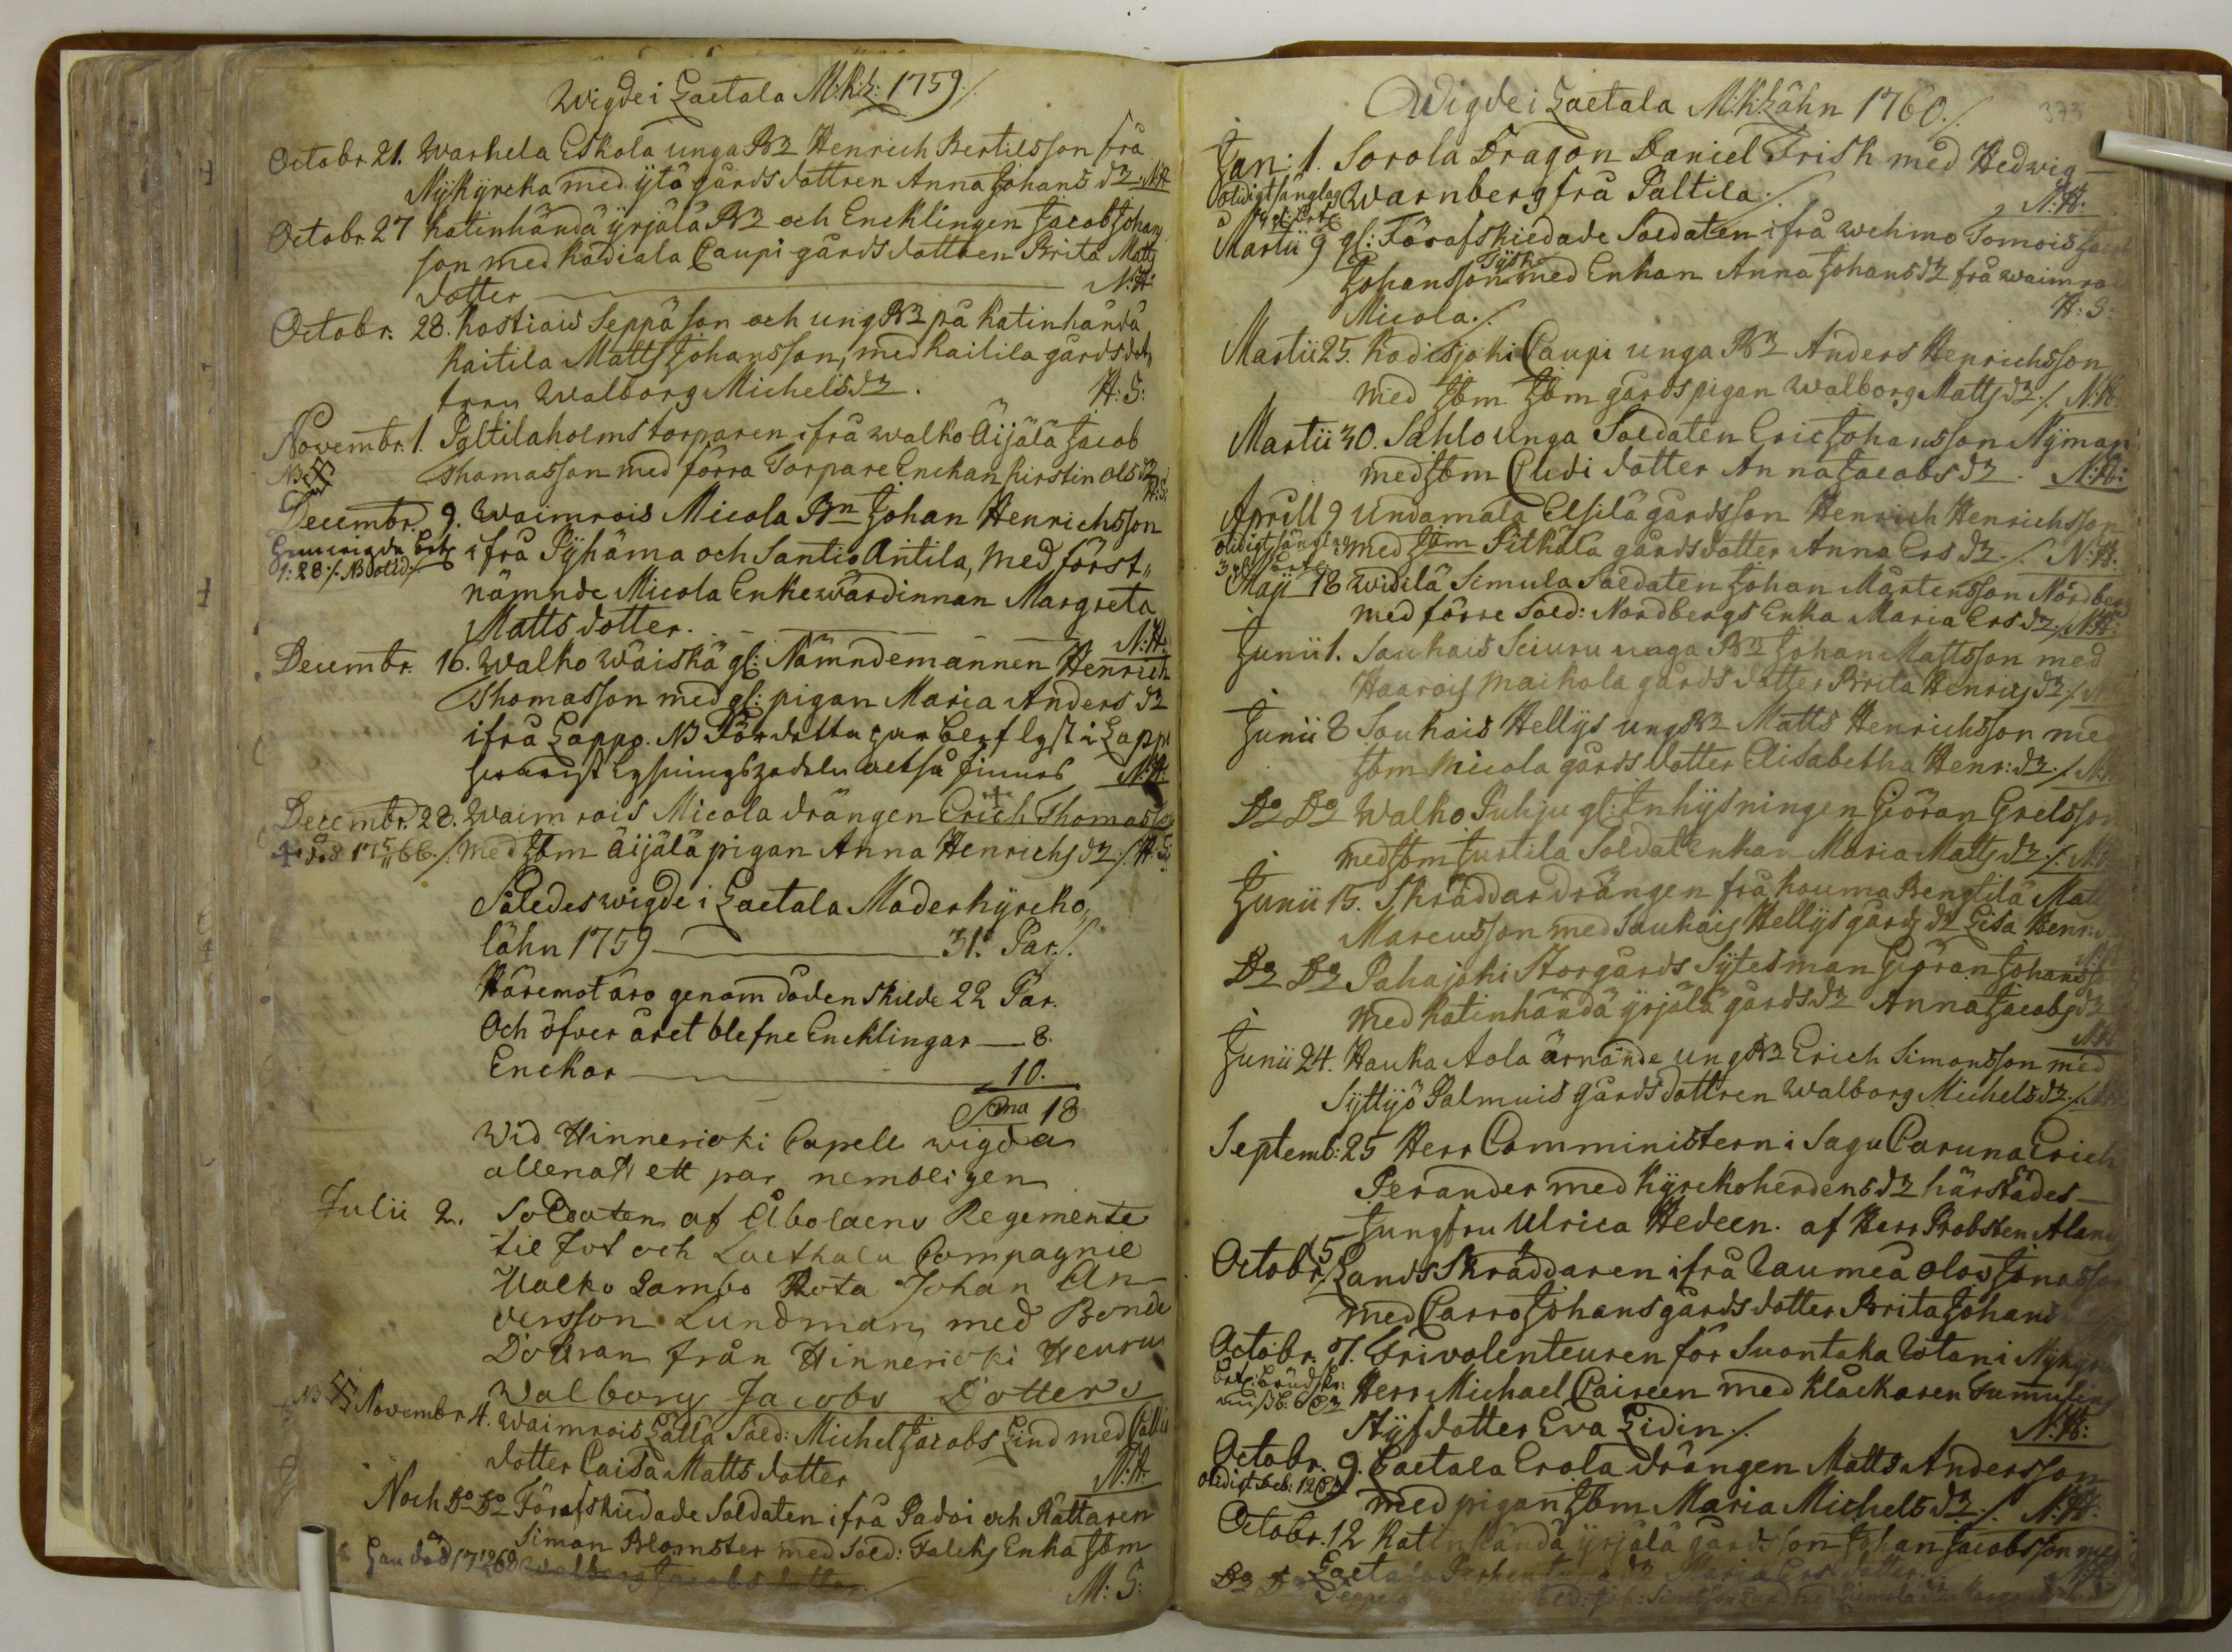 Wigde i Laetala M:k:L: 1759./.
Octobr. 21. Warhela Eskola unga Bn Henrich Bertilsson frå
Nykyrcka med ytö gårds dottren Anna Johans dr. N:H:
Octobr. 27 Katinhändä yrjälä Bn och Encklingen Jacob Johans
son med Kadiala Caupi gårds dottren Brita Matts
dotter N:H:
Octobr. 28. Kostiais Seppä son och ung Bn på Katinhändä
Kaitila Matts Johansson, med Kaitila gårds dot,
tren Walborg Michels dr. H:S:
Novembr. 1. Paltilaholms torparen ifrå Walko Äijälä Jacob
NB Thomasson med förra Torpare Enckan Kirstin Ols dr
H:S:
Decembr. 9. Waimrois Micola Bn Johan Henrichsson
ifrå Pyhäma och Santio Antila, med först,,
1:28./. NB
nämnde Micola Enkewärdinnan Margreta
Matts dotter. N:H:
Decembr. 16. Walko Wäiskä gl: Nämndemannen Henrich
Thomasson med gl: pigan Maria Anders dr
ifrå Lappo. NB För detta par lyst i Lappo
N:H:
Decembr. 28. Waimrois Micola drängen Erich Thomasson
med Jbm Äijälä pigan Anna Henrichs dr./. H:S:
Således wigde i Laetala Moderkyrcko,,
lähn 1759 31. Par./.
Häremot äro genom döden skilde 22 Par.
Och öfver året blefne Encklingar 8.
Enckor 10.
Sma 18
Wid Hinnerioki Capell wigda
allenast ett par nembligen
Julii 2. Soldaten af Åbo läns Regemente
til fot och Laethala Compagnie
Walko Lambo Rota Johan An
dersson Lundman, med Bonde
Dottran från Hinnerioki Heuru
Walborg Jacobs Dotter
NB Novembr. 4. Waimrois Lalla Sold: Michel Jacobs Lind med
dotter Caisa Matts dotter N:H:
Noch Do Do Förafskiedade Soldaten ifrå Padoi och Rättaren
Siman Blomster med Sold: Falcks Enka Jbm
Walborg Jacobs dotter
M:S:
Wigde i Laetala M:k:Lähn 1760./.
373
Jan: 1. Sorola Dragon Daniel Frisk med Hedwig
Warnberg frå Paltila./. N:H:
Martii 9 gl: Förafskiedade Soldaten ifrå Wehmo Tomois
Tysk
Johansson med Enkan Anna Johans dr frå Waimrois
Micola./. H:S:
Martii 25. Kodisjoki Caupi unga Bn Anders Henrichsson
med Jbm Jbm gårds pigan Walborg Matts dr./. N:H:
Martii 30. Sahlo unga Soldaten Eric Johansson Nyman
med Jbm Cludi dotter Anna Jacobs dr. N:H:
Aprill 9 Undamala Elsilä gårdsson Henrich Henrichsson
med Jbm Pitkälä gårds dotter Anna Ers dr./. N:H:
Maji 18 Widilä Simula Soldaten Johan Mårtensson Nordberg
med förre Sold: Nordbergs Enka Maria Ers dr./. N:H:
Junii 1. Saukais Sciuru unga Bn Johan Mattsson med
Haarois Maikola gårds dotter Brita Henrics dr./.
Junii 8 Saukais Hellys ung Bn Matts Henrichsson med
Jbm Micola gårds dotter Elisabetha Henr: dr./.
Do Do Walko Puhju gl: Inhysningen Giöran Grelsson
med Jbm Justila Soldat enkan Maria Matts dr./.
Junii 15. Skräddardrängen frå Kauma Bengtilä Matts
Marcusson med Saukais Hellys gårds dr Lisa Henr:
Do Do Pahajoki Storgårds Sytesman Giöran Johansson
med Katinhändä yrjälä gårds dr Anna Jacobs dr
Junii 24. Hauka Aola ärnände ung Bn Erich Simonsson med
Syttyö Palmuis gårds dottren Walborg Michels dr./.
Septemb: 25 Herr Comministern i Sagu Caruna Erich
Perander med Kyrckoherdens dr härstädes
Jungfru Ulrica Hedeen. af Herr Probsten Alan
Octobr. 5 Lands Skräddaren ifrå Raumeå Olof Jonasson
med Carro Johans gårds dotter Brita Johans
Octobr. 7. Frivolenteuren för Suontaka Rotan i Nykyrc
Herr Michael Caireen med Klåckaren
Styfdotter Eva Lidin./. N:H:
Octobr. 9. Laetala Erola drängen Matts Andersson
med pigan Jbm Maria Michels dr./. N:H:
Octobr. 12 Katinhändä yrjälä gårds son Johan Jacobsson med
Laetala Maria Ers dotter
Do Do